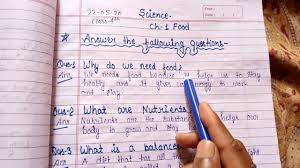 22-05-20
Class-4th
Science
Ch-1 Food
* Answer the following questions-
Que-1 Why do we need food?
Ans We needs food because it helps us to stay
healthy and it gives us energy to work
and play
Que-2 What are Nutrients?
Ans Nutrients are the substances
body to grow and stay
Que-3 What is a balance
A diet that has all the